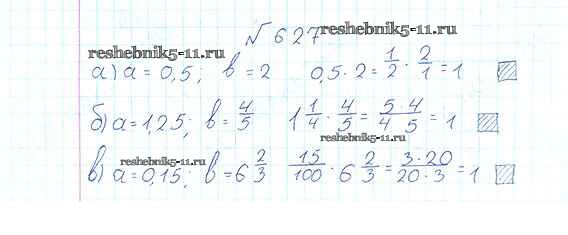 № 627
reshebnik5-11.ru
reshebnik5-11.ru
а) a = 0,5; b = 2 0,5 · 2 = 1/2 · 2/1 = 1
б) a = 1,25; b = 4/5 1 1/4 · 4/5 = 5·4/4 5 = 1
reshebnik5-11.ru
в) a = 0,15; b = 6 2/3 15/100 · 6 2/3 = 3·20/20·3 = 1